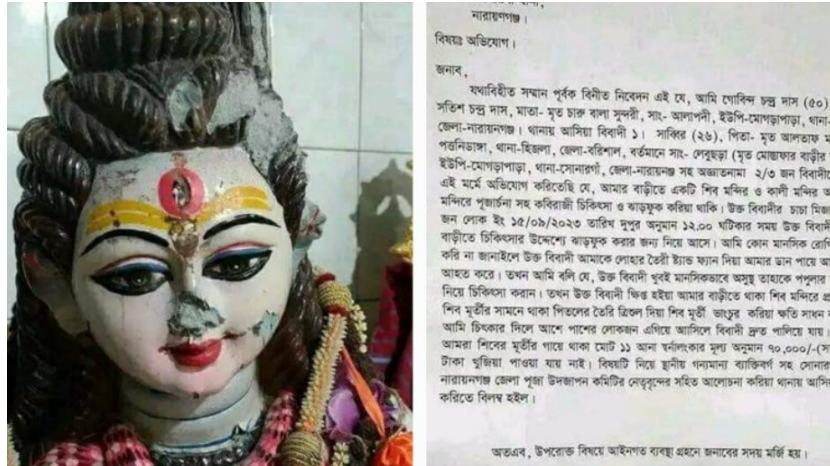 নারায়ণগঞ্জ।
বিষয়ঃ অভিযোগ।
জনাব,
যথাবিহীত সম্মান পূর্বক বিনীত নিবেদন এই যে, আমি গোবিন্দ চন্দ্র দাস (৫০)
সতিশ চন্দ্র দাস, মাতা- মৃত চারু বালা সুন্দরী, সাং- আলাপদী, ইউপি-মোগড়াপাড়া, থানা-
জেলা-নারায়নগঞ্জ। থানায় আসিয়া বিবাদী ১। সাব্বির (২৬), পিতা- মৃত আলতাফ
পত্তনিডাঙ্গা, থানা-হিজলা, জেলা-বরিশাল, বর্তমানে সাং- লেবুছড়া (মৃত মোস্তাফার বাড়ীর
ইউপি-মোগড়াপাড়া, থানা-সোনারগাঁ, জেলা-নারায়নগঞ্জ সহ অজ্ঞাতনামা ২/৩ জন
এই মর্মে অভিযোগ করিতেছি যে, আমার বাড়ীতে একটি শিব মন্দির ও কালী মন্দির
মন্দিরে পূজার্চনা সহ কবিরাজী চিকিৎসা ও ঝাড়ফুক করিয়া থাকি। উক্ত বিবাদীর চাচা
জন লোক ইং ১৫/০৯/২০২৩ তারিখ দুপুর অনুমান ১২.০০ ঘটিকার সময় উক্ত
বাড়ীতে চিকিৎসার উদ্দেশ্যে ঝাড়ফুক করার জন্য নিয়ে আসে। আমি কোন মানসিক
করি না জানাইলে উক্ত বিবাদী আমাকে লোহার তৈরী ষ্ট্যান্ড ফ্যান দিয়া আমার ডান পায়ে
আহত করে। তখন আমি বলি যে, উক্ত বিবাদী খুবই মানসিকভাবে অসুস্থ তাহাকে পপুলার
নিয়ে চিকিৎসা করান। তখন উক্ত বিবাদী ক্ষিপ্ত হইয়া আমার বাড়ীতে থাকা শিব মন্দিরে
শিব মূর্তীর সামনে থাকা পিতলের তৈরি ত্রিশুল দিয়া শিব মূর্তী ভাংচুর করিয়া ক্ষতি সাধন
আমি চিৎকার দিলে আশে পাশের লোকজন এগিয়ে আাসিলে বিবাদী দ্রুত পালিয়ে যায়।
আমরা শিবের মূর্তীর গায়ে থাকা মোট ১১ আনা স্বর্নালংকার মূল্য অনুমান ৭০,০০০/-
টাকা খুজিয়া পাওয়া যায় নাই। বিষয়টি নিয়ে স্থানীয় গন্যমান্য ব্যাক্তিবর্গ সহ
নারায়নগঞ্জ জেলা পূজা উদজাপন কমিটির নেতৃবৃন্দের সহিত আলোচনা করিয়া থানায়
করিতে বিলম্ব হইল।
অতএব, উপরোক্ত বিষয়ে আইনগত ব্যবস্থা গ্রহনে জনাবের সদয় মর্জি হয়।